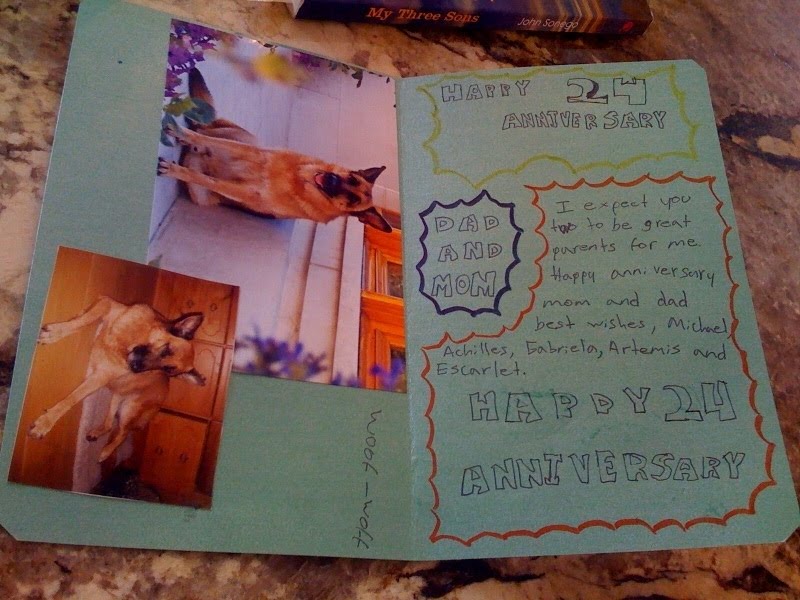 My Three Sons
John Sonego
woof-woff
HAPPY 24
ANNIVERSARY
DAD
AND
MOM
I expect you
two to be great
parents for me
Happy anniversary
mom and dad
best wishes, Michael
Achilles, Gabriela, Artemis and
Escarlet.
HAPPY 24
ANNIVERSARY